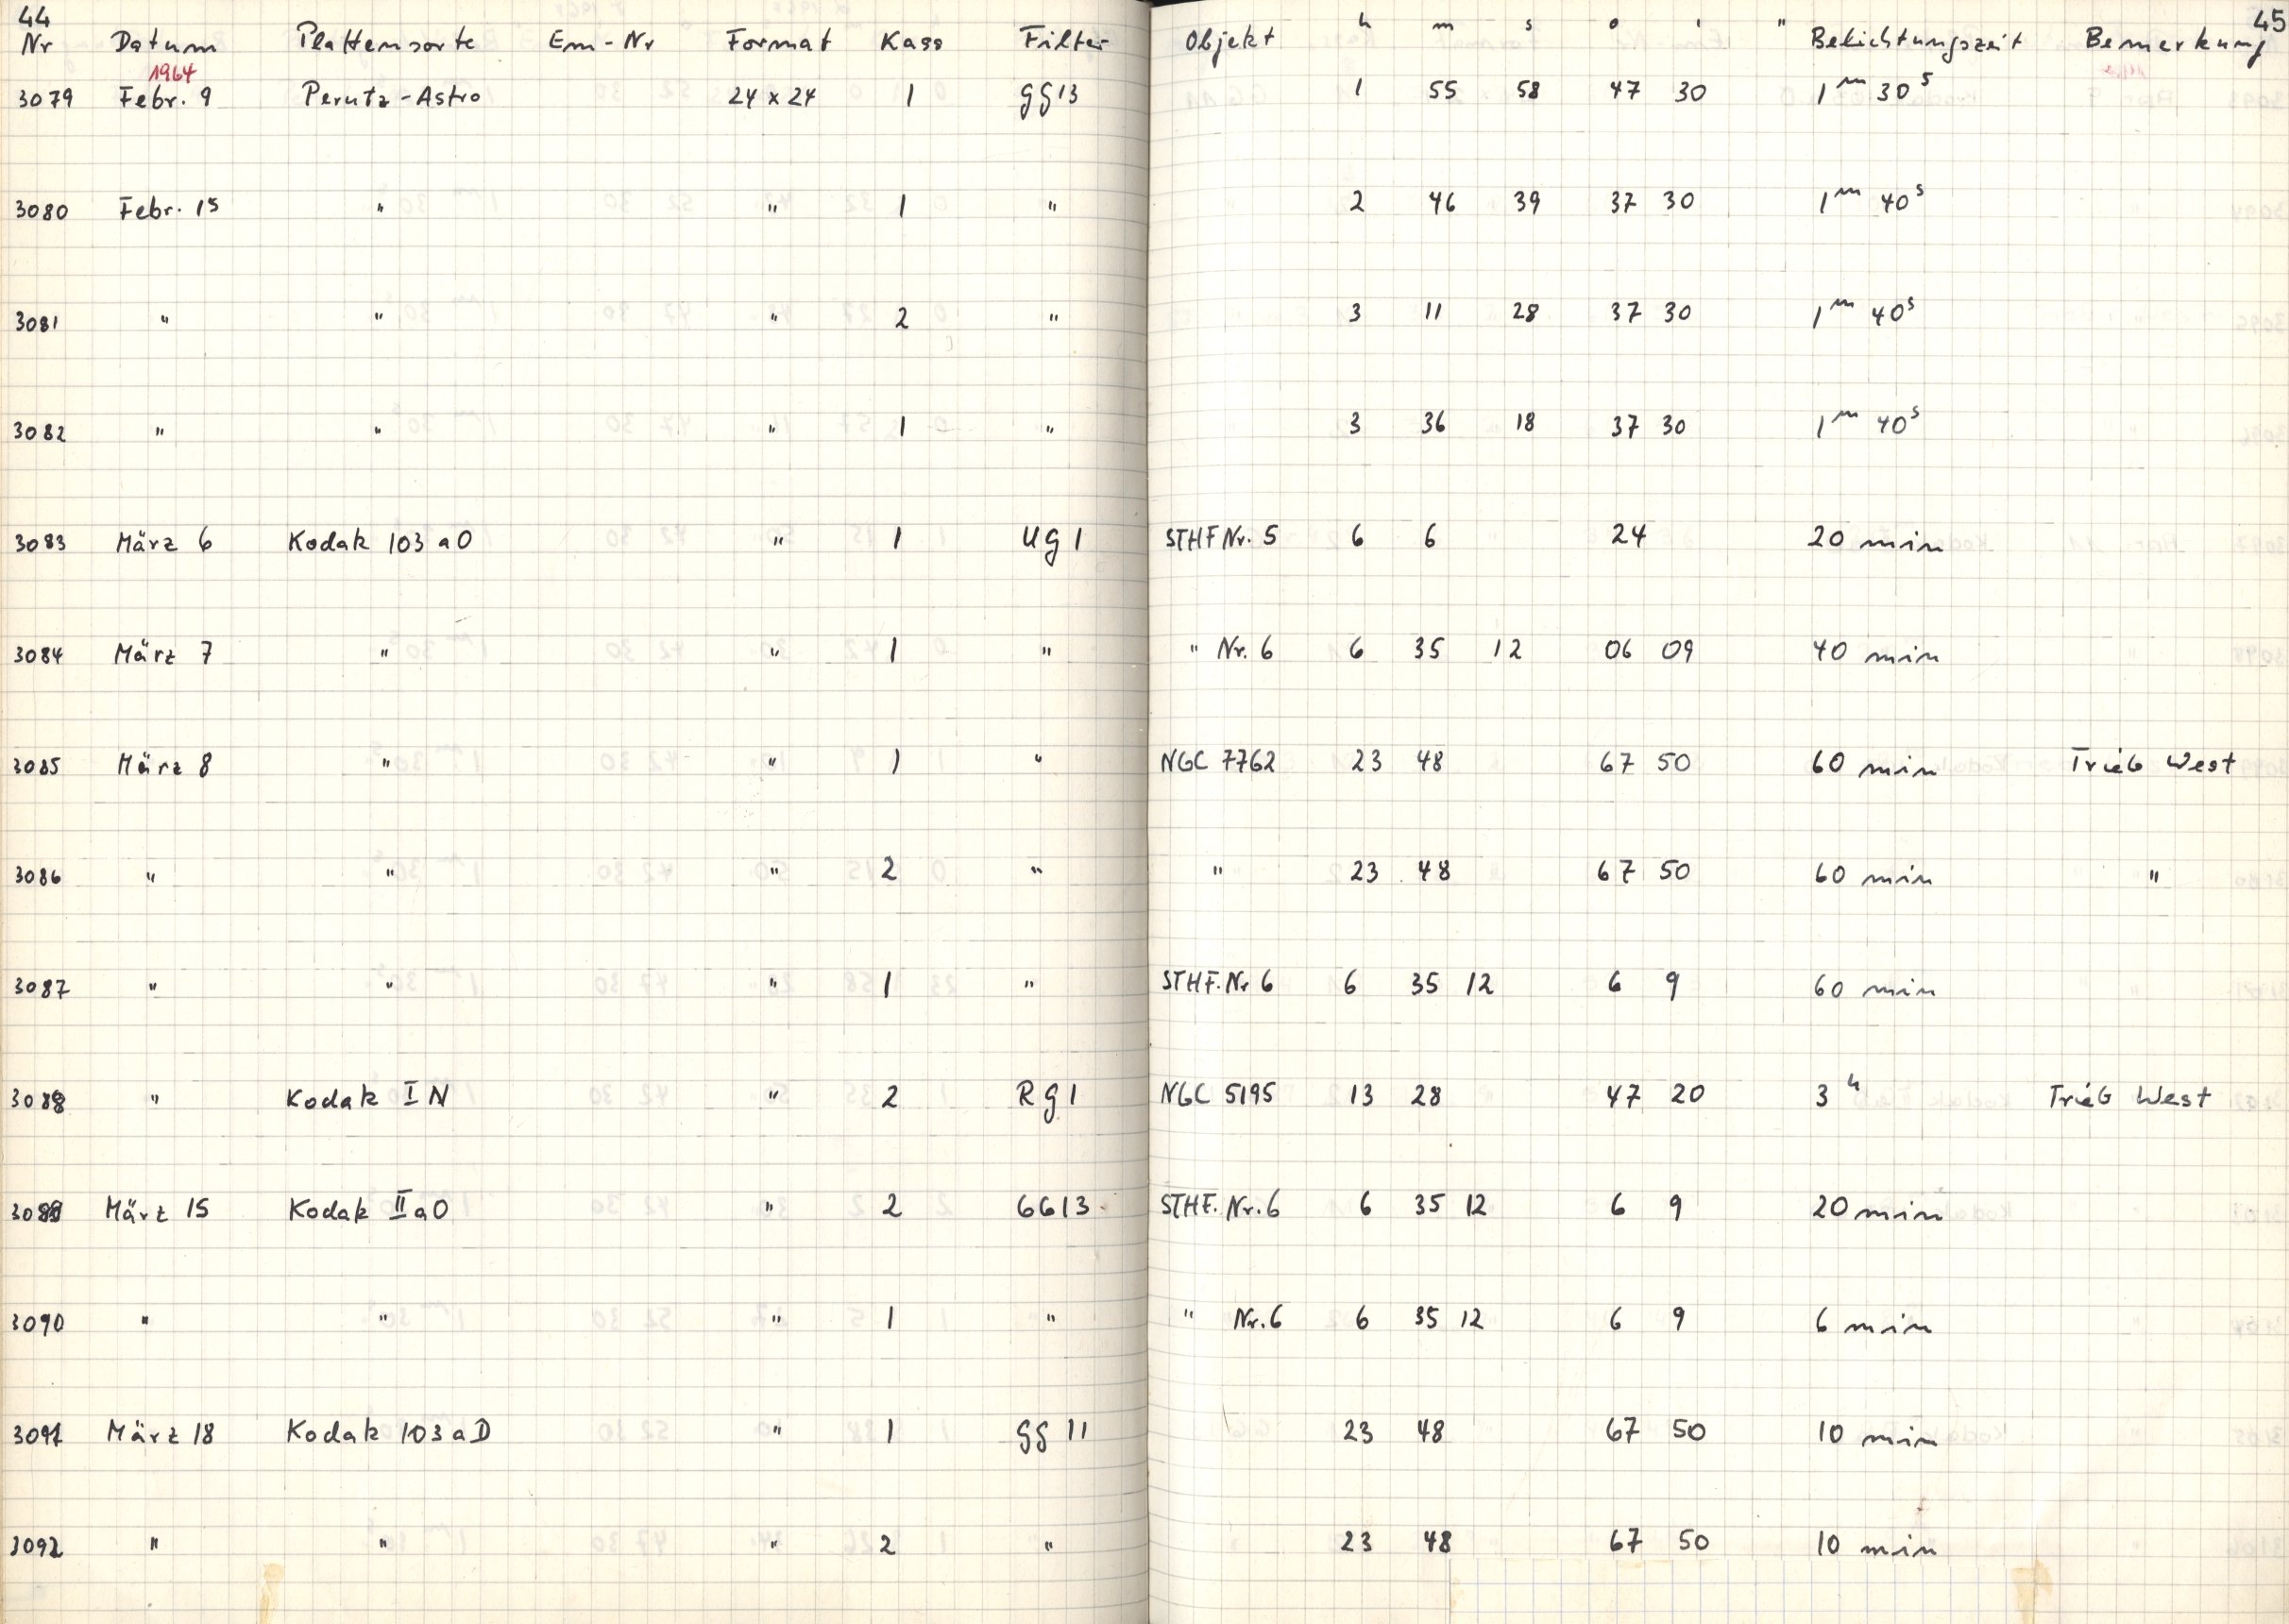 44 45
Nr Datum Plattensorte Em-Nr Format Kass Filter Objekt h m s o ' " Belichtungszeit Bemerkung
1964
3079 Febr. 9 Perutz-Astro 24 x 24 1 GG13 1 55 58 47 30 1m 30s
3080 Febr. 15 " " 1 " 2 46 39 37 30 1m 40s
3081 " " " 2 " 3 11 28 37 30 1m 40s
3082 " " " 1 " 3 36 18 37 30 1m 40s
3083 März 6 Kodak 103 aO " 1 UG 1 STHF Nr. 5 6 6 24 20 min
3084 März 7 " " 1 " " Nr. 6 6 35 12 06 09 40 min
3085 März 8 " " 1 " NGC 7762 23 48 67 50 60 min Trieb West
3086 " " " 2 " " 23 48 67 50 60 min "
3087 " " " 1 " STHF. Nr 6 6 35 12 6 9 60 min
3088 " Kodak I N " 2 RG 1 NGC 5195 13 28 47 20 3h Trieb West
3089 März 15 Kodak II aO " 2 GG13 STHF. Nr. 6 6 35 12 6 9 20 min
3090 " " " 1 " " Nr. 6 6 35 12 6 9 6 min
3091 März 18 Kodak 103 aD " 1 GG 11 23 48 67 50 10 min
3092 " " " 2 " 23 48 67 50 10 min